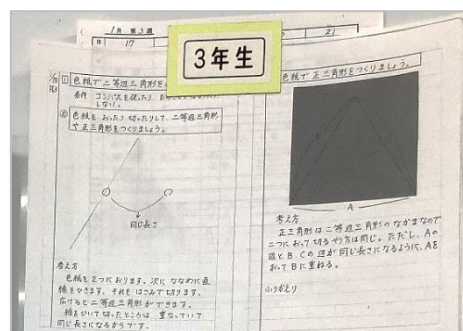 1月 第3週
17
21
3年生
色紙で二等辺三角形を
条件 コンパスを使ったり
しない。
色紙を、おったり切ったりして、二等辺三角形
や正三角形をつくりましょう。
同じ長さ
考え方
色紙を2つにおります。次に ななめに直
線をひきます。それを はさみで切ります。
広げると二等辺三角形ができます。
線をひいて切ったところは、重なっていて
同じ長さになるからです。
色紙で正三角形をつくりましょう。
A
考え方
正三角形は二等辺三角形のなかまなので
二つにおって切るやり方は同じ。ただし、Aの
辺とB、Cの辺が同じ長さになるように、Aを
おってBに重ねる。
ふりかえり